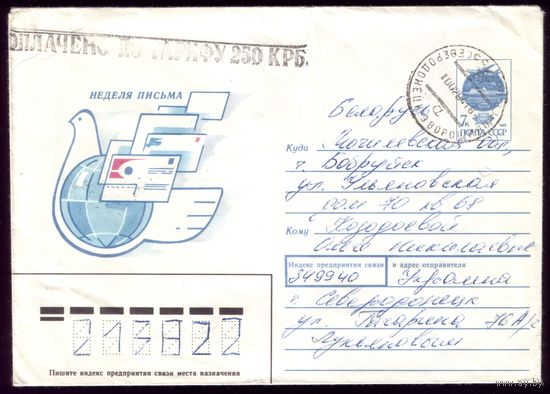 ОПЛАЧЕНО ПО ТАРИФУ 250 КРБ.
НЕДЕЛЯ ПИСЬМА
СЕВЕРОДОНЕЦК
7к
ПОЧТА СССР
Беларусь
Куда Могилевская обл,
г. Бобруйск
ул. Ульяновская
дом 70 кв 68
Кому Козодоевой
Ольге Николаевне
Индекс предприятия связи и адрес отправителя
349940 Украина
г. Северодонецк
ул. Гагарина 76
Лукьяновым
213822
Пишите индекс предприятия связи места назначения
www.ay.by